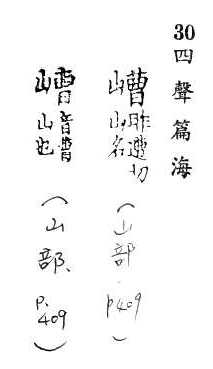 30 四聲篇海
嶆 昨遭切 山名 (山部 p409)
音曹 山也 (山部、P.409)